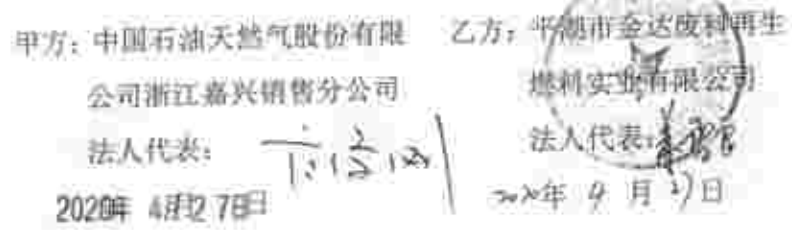 甲方：中国石油天然气股份有限
公司浙江嘉兴销售分公司
法人代表：
2020年 4月27日
乙方：平湖市金达废料再生
燃料实业有限公司
法人代表：
2020年 4 月 27日